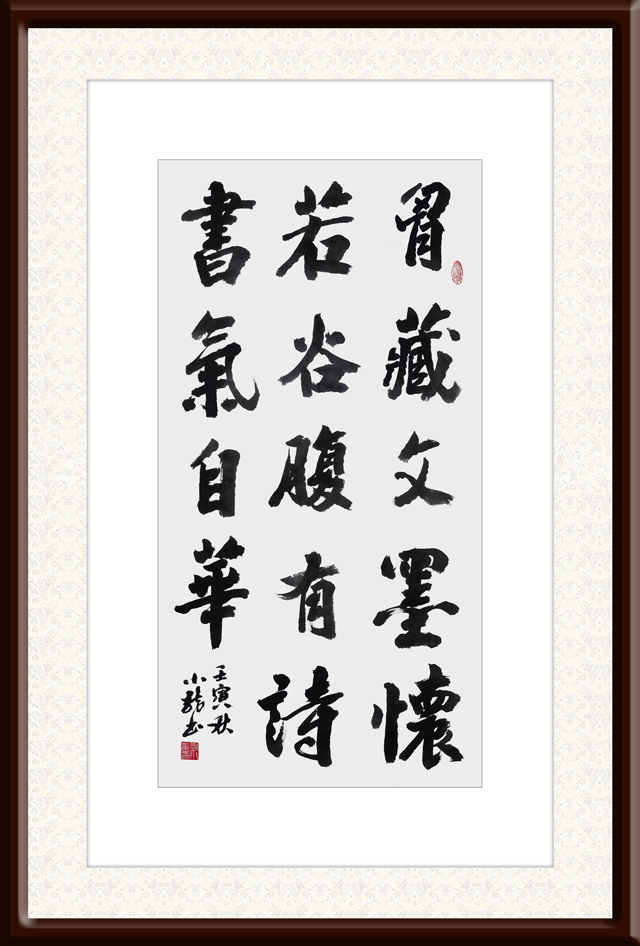 胷藏文墨懷
若谷腹有詩
書氣自華
壬寅秋
小龍书